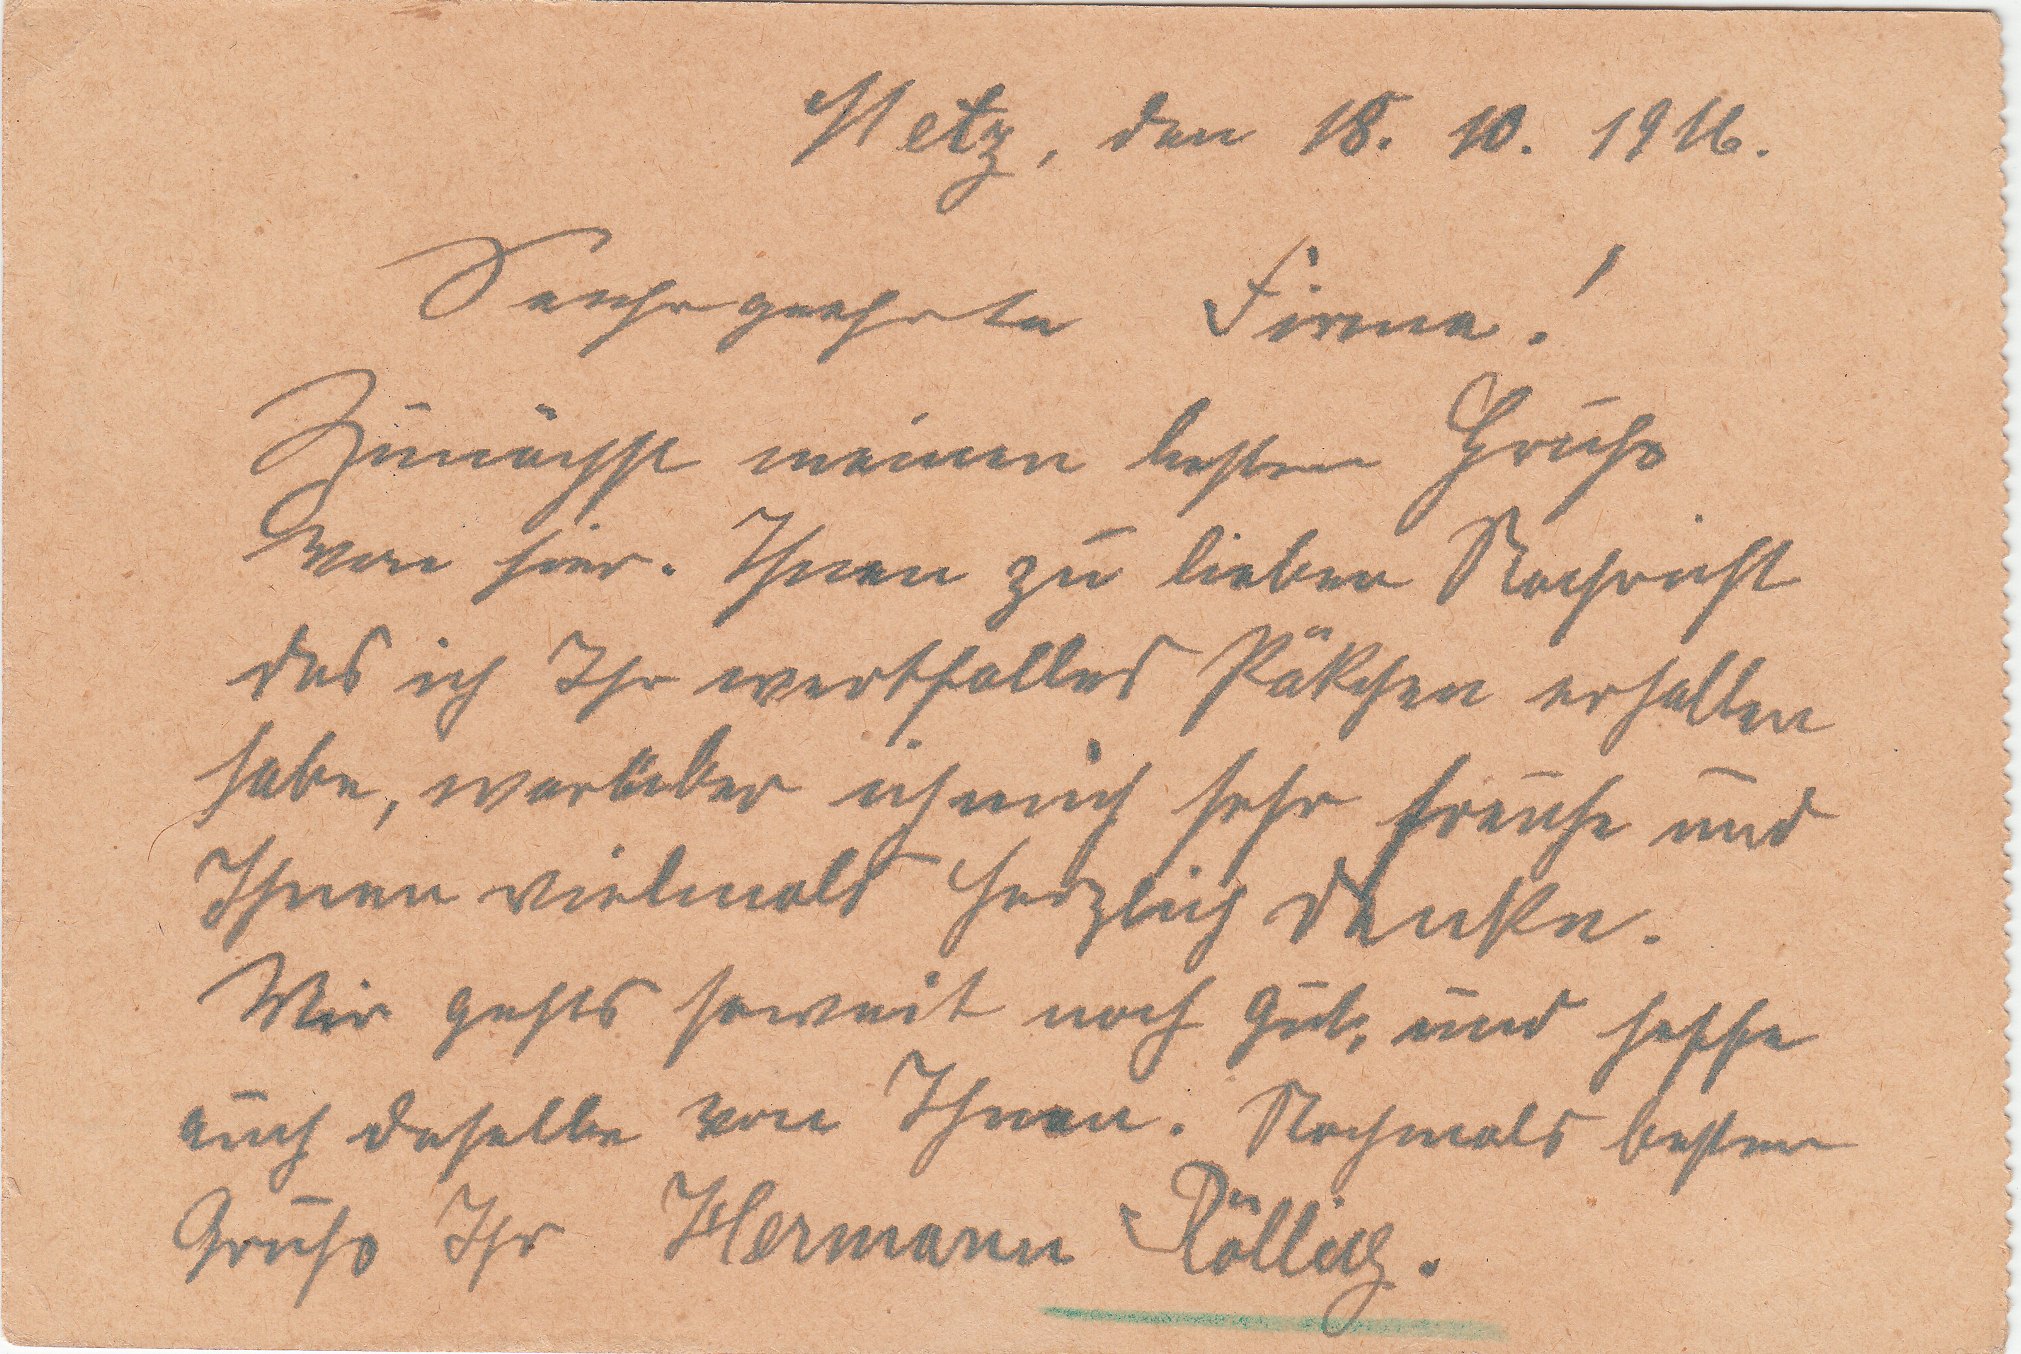 Metz, den 18. 10. 1916.
Seehrgeehrte Firma!
Zunächst meinen besten Gruß
von hier. Ihnen zu lieber Nachricht
das ich Ihr wertfolles Päkchen erhalten
habe, worüber ich mich sehr freuhe und
Ihnen vielmals herzlich danke.
Mir gehts soweit noch gut, und hoffe
auch deselbe von Ihnen. Nochmals besten
Gruß Ihr Hermann Röllig.